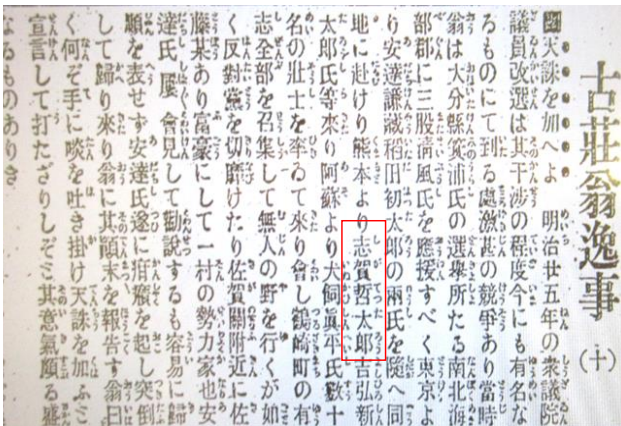 古莊翁逸事 (十)
天誅を加へよ 明治廿五年の衆議院
議員改選は其干渉の程度今にも有名な
るものにて到る處激甚の競爭あり當時
翁は大分縣箕浦氏の選擧所たる南北海
部郡に三股淸風氏を應援すべく東京よ
り安達謙藏稻田初太郎の兩氏を隨へ同
地に赴けり熊本より志賀哲太郎吉弘新
太郎氏等來り阿蘇より犬飼眞平氏數十
名の壯士を率ゐて來り會し鶴崎町の有
志全部を召集して無人の野を行くが如
く反對黨を切靡けたり佐賀關附近に佐
藤某あり富豪にして一村の勢力家也安
達氏屢會見して勸說するも容易に
願を表せず安達氏遂に疳癪を起し突倒
して歸り來り翁に其顚末を報告す翁曰
く何ぞ手に啖を吐き掛け天誅を加ふミ
宣言して打たざりしぞミ其意氣頗る盛
なるものありき